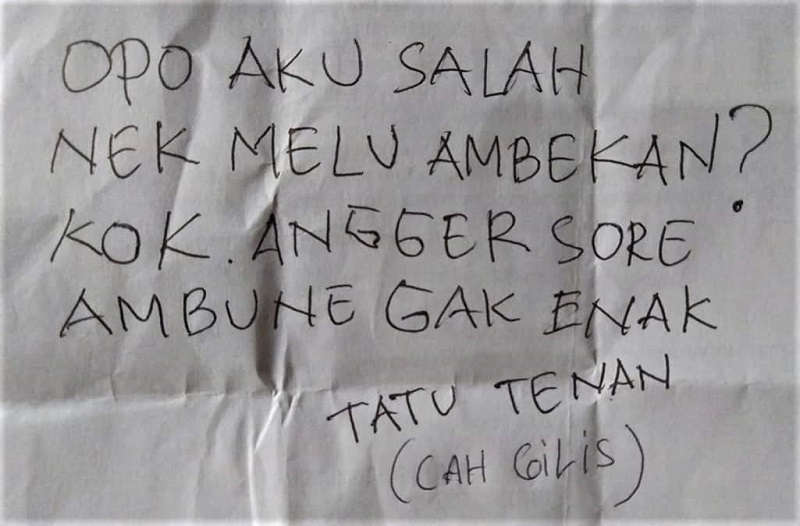 OPO AKU SALAH
NEK MELU AMBEKAN?
KOK. ANGGER SORE
AMBUNE GAK ENAK
TATU TENAN
(CAH GILIS)